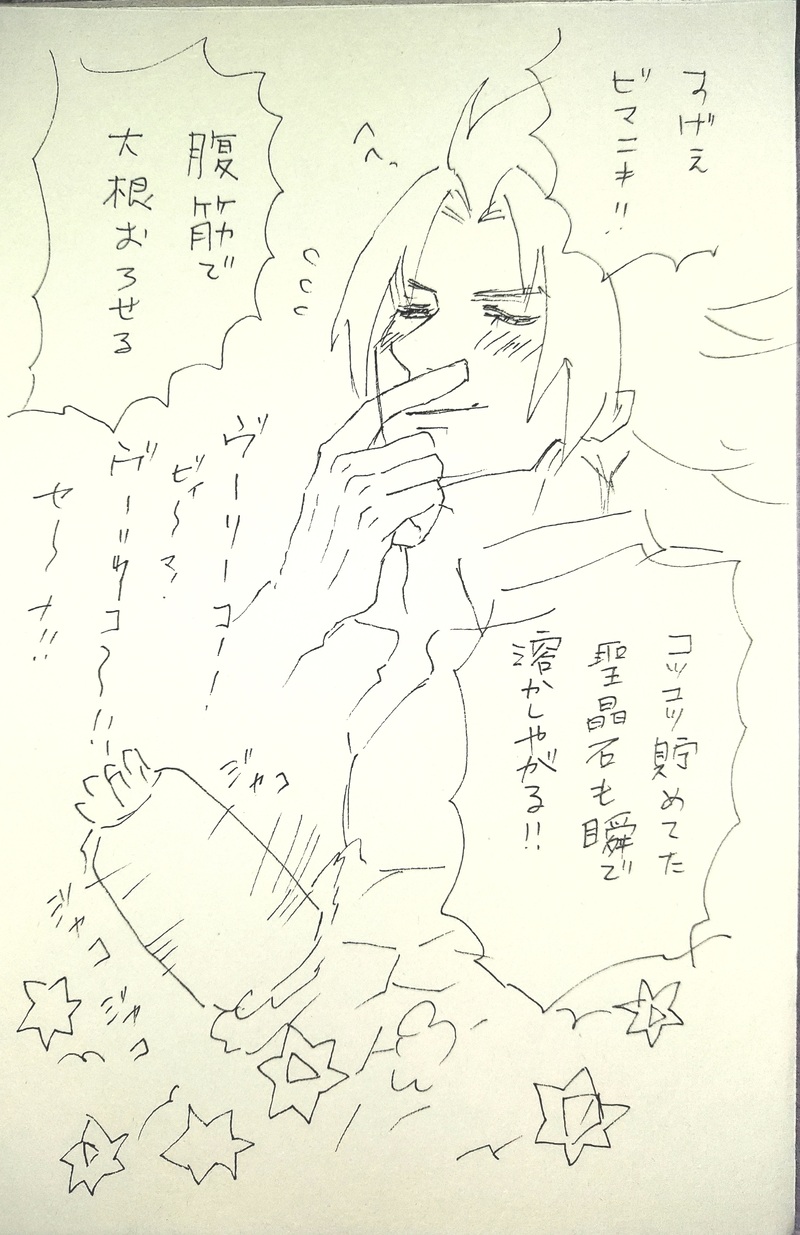 すげえ
ビマニキ!!
腹筋で
大根おろせる
ヴーリーコー!
ビィ〜マ!
ヴーリーコ〜!!
セ〜ナ!!
コツコツ貯めてた
聖晶石も瞬で
溶かしやがる!!
ジャコ
ジャコ
ジャコ